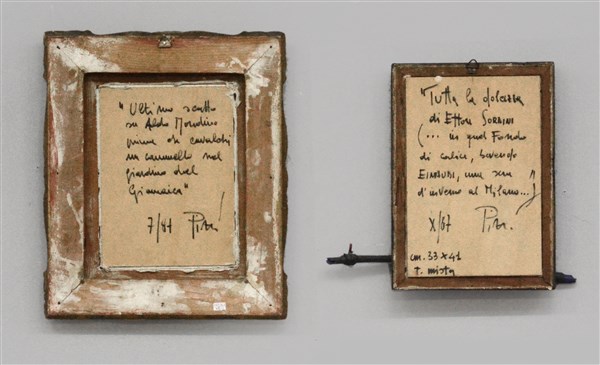 "Ultimo scatto
su Aldo Mondino
prima di cavalchi
un cammello nel
giardino del
Giamaica"
7/87
"Tutta la dolcezza
di Ettore SORDINI
(... in quel Fondo
di calice, bevendo
EINAUDI, una sera
d'inverno al Milano...)
X/67
cm. 33 x 41
t. mista